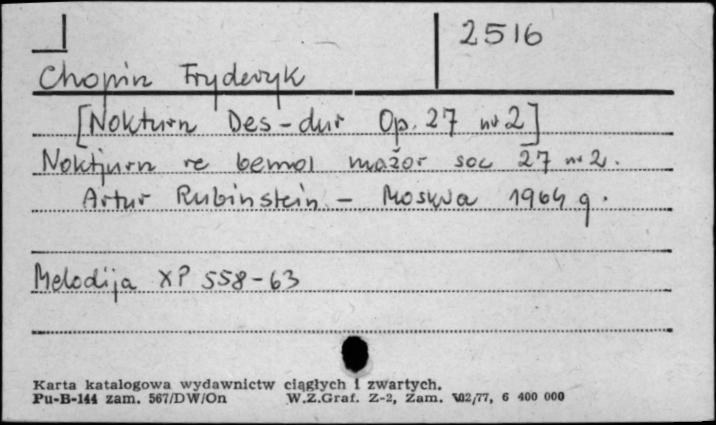 2516
Chopin Fryderyk
[Nokturn Des-dur Op. 27 nr 2]
Noktjurn re bemol mažor soc 27 nr 2.
Artur Rubinstein - Moskva 1964 g.
Melodija XP 558-63
Karta katalogowa wydawnictw ciągłych i zwartych.
Pu-B-144 zam. 567/DW/On W.Z.Graf. Z-2, Zam. 702/77, 6 400 000